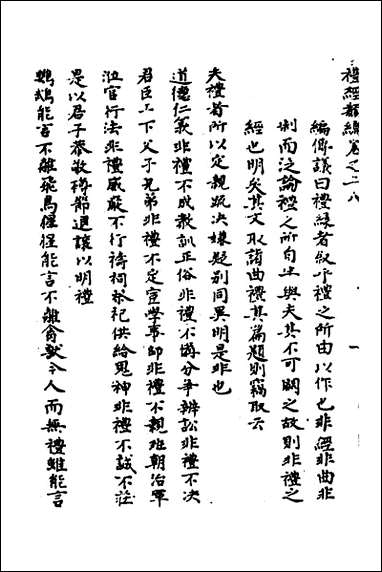 禮經類編卷之二八
編傳議曰禮緣者叙乎禮之所由以作也非經非曲非
制而泛論禮之所自生與夫其不可闕之故則非禮之
經也明矣其文取諸曲禮其篇題則竊取云
夫禮者所以定親疏決嫌疑別同異明是非也
道德仁義非禮不成教訓正俗非禮不備分爭辨訟非禮不决
君臣上下父子兄弟非禮不定宦學事師非禮不親班朝治軍
涖官行法非禮威嚴不行禱祠祭祀供給鬼神非禮不誠不莊
是以君子恭敬撙節退讓以明禮
鸚鵡能言不離飛鳥猩猩能言不離禽獸今人而無禮雖能言